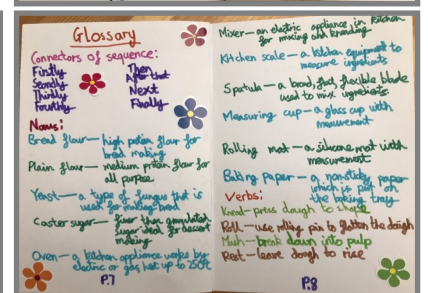 Glossary
Connectors of sequence:
Firstly
Secondly
Thirdly
Fourthly
Then
After that
Next
Finally
Nouns:
Bread flour— high protein flour for
bread making
Plain flour— medium protein flour for
all purpose
Yeast— a type of fungus that is
used for making bread
Caster sugar— finer than granulated
sugar ideal for dessert
making
Oven— a kitchen appliance works by
electric or gas, heat up to 250°C
P.7
Mixer— an electric appliance in kitchen
for mixing and kneading
Kitchen scale— a kitchen equipment to
measure ingredients
Spatula— a broad, flat, flexible blade
used to mix ingredients
Measuring cup— a glass cup with
measurement
Rolling mat— a silicone mat with
measurement
Baking paper— a nonsticky paper
which is put on
the baking tray
Verbs:
Knead— press dough to shape
Roll— use rolling pin to flatten the dough
Mash— break down into pulp
Rest— leave dough to rise
P.8